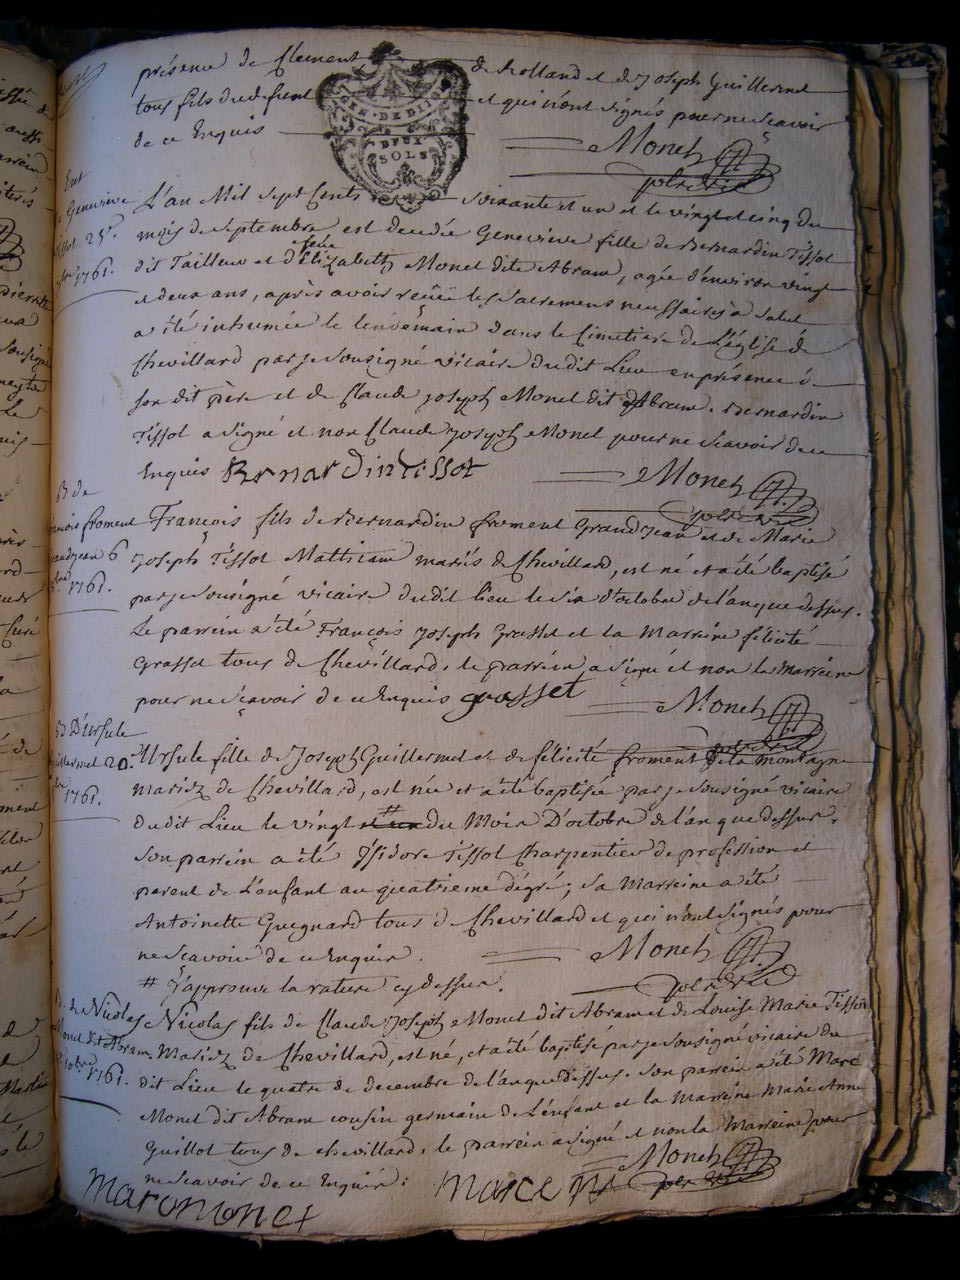 présence de Clement de holland et de Joseph Guillermet
tous fils du defunt et qui n'ont signés pour ne scavoir
de ce Enquis Monet
GEN·DE DIJ
DEUX
SOLS
ptre vic
Ent
Geneviève
Tissot 25e
1761.
L'an Mil sept Cents soixante et un et le vingt et cinq du
mois de septembre est decedée Geneviève fille de Bernardin Tissot
dit Tailleur et d'feüe Elizabeth Monet dite Abram, agée d'environ vingt
et deux ans, après avoir recüe les Sacremens necessaires à salut
a été inhumée le lendemain dans le Cimetiere de L'église de
Chevillard par je soussigné vicaire dudit Lieu en présence de
son dit père et de Claude joseph Monet dit Abram. Bernardin
Tissot a signé et non Claude Joseph Monet pour ne scavoir de ce
Enquis Bernardin Tissot Monet
ptre vic
B de
françois froment
grandjean 6
1761.
François fils de Bernardin froment Grand Jean et de Marie
Joseph Tissot Mathieu mariés de Chevillard, est né et a été baptisé
par je soussigné vicaire du dit lieu le six d'octobre de l'an que dessus.
Le parrein a été François Joseph Grasset et la Marreine félicité
Grasset tous de Chevillard, le parrein a signé et non la Marreine
pour ne scavoir de ce Enquis grasset Monet
ptre vic
B D'ursule
guillermet 20
1761.
Ursule fille de Joseph Guillermet et de félicité froment de la Montagne
mariez de Chevillard, est née et a été baptisée par je soussigné vicaire
du dit Lieu le vingt # du Mois D'octobre de l'an que dessus.
Son parrein a été Isidore Tissot Charpentier de profession et
parent de L'enfant au quatrieme dégré; sa Marreine a été
Antoinette Gueynard tous de Chevillard et qui n'ont signés pour
ne scavoir de ce Enquis. Monet
# J'approuve la rature cy dessus. ptre vic
B. de Nicolas
Monet dit Abram
1761.
Nicolas fils de Claude Joseph Monet dit Abram et de Louise Marie Tissot
Mariez de Chevillard, est né, et a été baptisé par je soussigné vicaire du
dit Lieu le quatre de decembre de l'an que dessus. Son parrein a été Marc
Monet dit Abram cousin germain de L'enfant et la Marreine Marie Anne
Guillot tous de chevillard, le parrein a signé et non la Marreine pour
ne scavoir de ce Enquise: Monet
maromonet marc m ptre vic